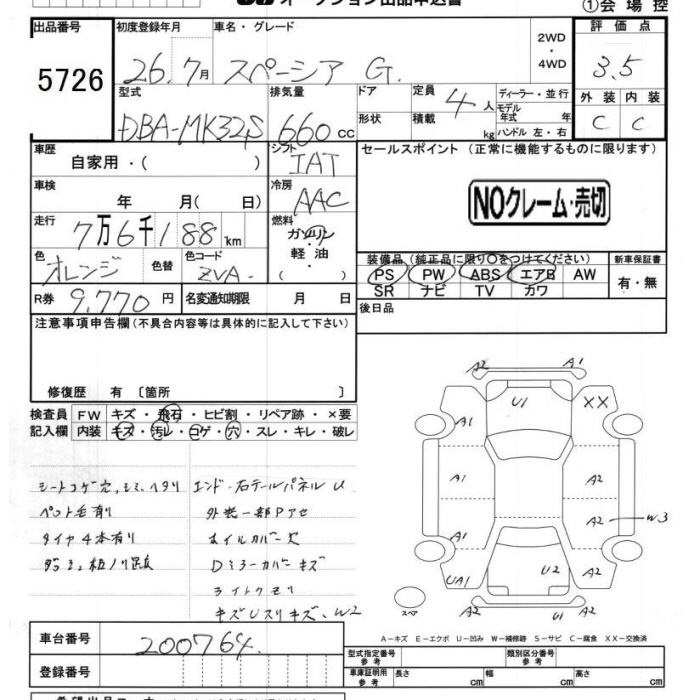 オークション出品申込書
①会場控
出品番号 初度登録年月 車名・グレード 評価点
5726 26.7月 スペーシア G. 2WD・4WD 3.5
型式 排気量 ドア 定員 ディーラー・並行 外装 内装
DBA-MK32S 660cc 形状 積載 4人 kg モデル年式 年 ハンドル 左・右 C C
車歴 自家用・( ) シフト IAT セールスポイント (正常に機能するものに限ります)
車検 年 月( 日) 冷房 AAC NOクレーム・売切
走行 7万6千188km 燃料 ガソリン 軽油 ( )
色 オレンジ 色替 色コード ZVA. 装備品(純正品に限り○をつけてください) 新車保証書
PS PW ABS エアB AW 有・無
R券 9,770円 名変通知期限 月 日 SR ナビ TV カワ
注意事項申告欄(不具合内容等は具体的に記入して下さい) 後日品
修復歴 有 〔箇所 〕
検査員 FW キズ・飛石・ヒビ割・リペア跡・×要
記入欄 内装 キズ・汚レ・コゲ・穴・スレ・キレ・破レ
シートコゲ穴、シミ、ヘタリ エンド・右テールパネル U
ペット毛有り 外装一部Pアセ
タイヤ4本有り ホイルカバー欠
Dミラーカバーキズ
ライトクモリ
キズUスリキズ、W2
A2 A1
U1 XX
A1
A1 A2
A2 W3
A1
UA1 U2 A2
スペア A2 U1 A2
A-キズ E-エクボ U-凹み W-補修跡 S-サビ C-腐食 XX-交換済
車台番号 200764.
型式指定番号 参考 類別区分番号 参考
登録番号
車庫証明用 参考 長さ cm 幅 cm 高さ cm